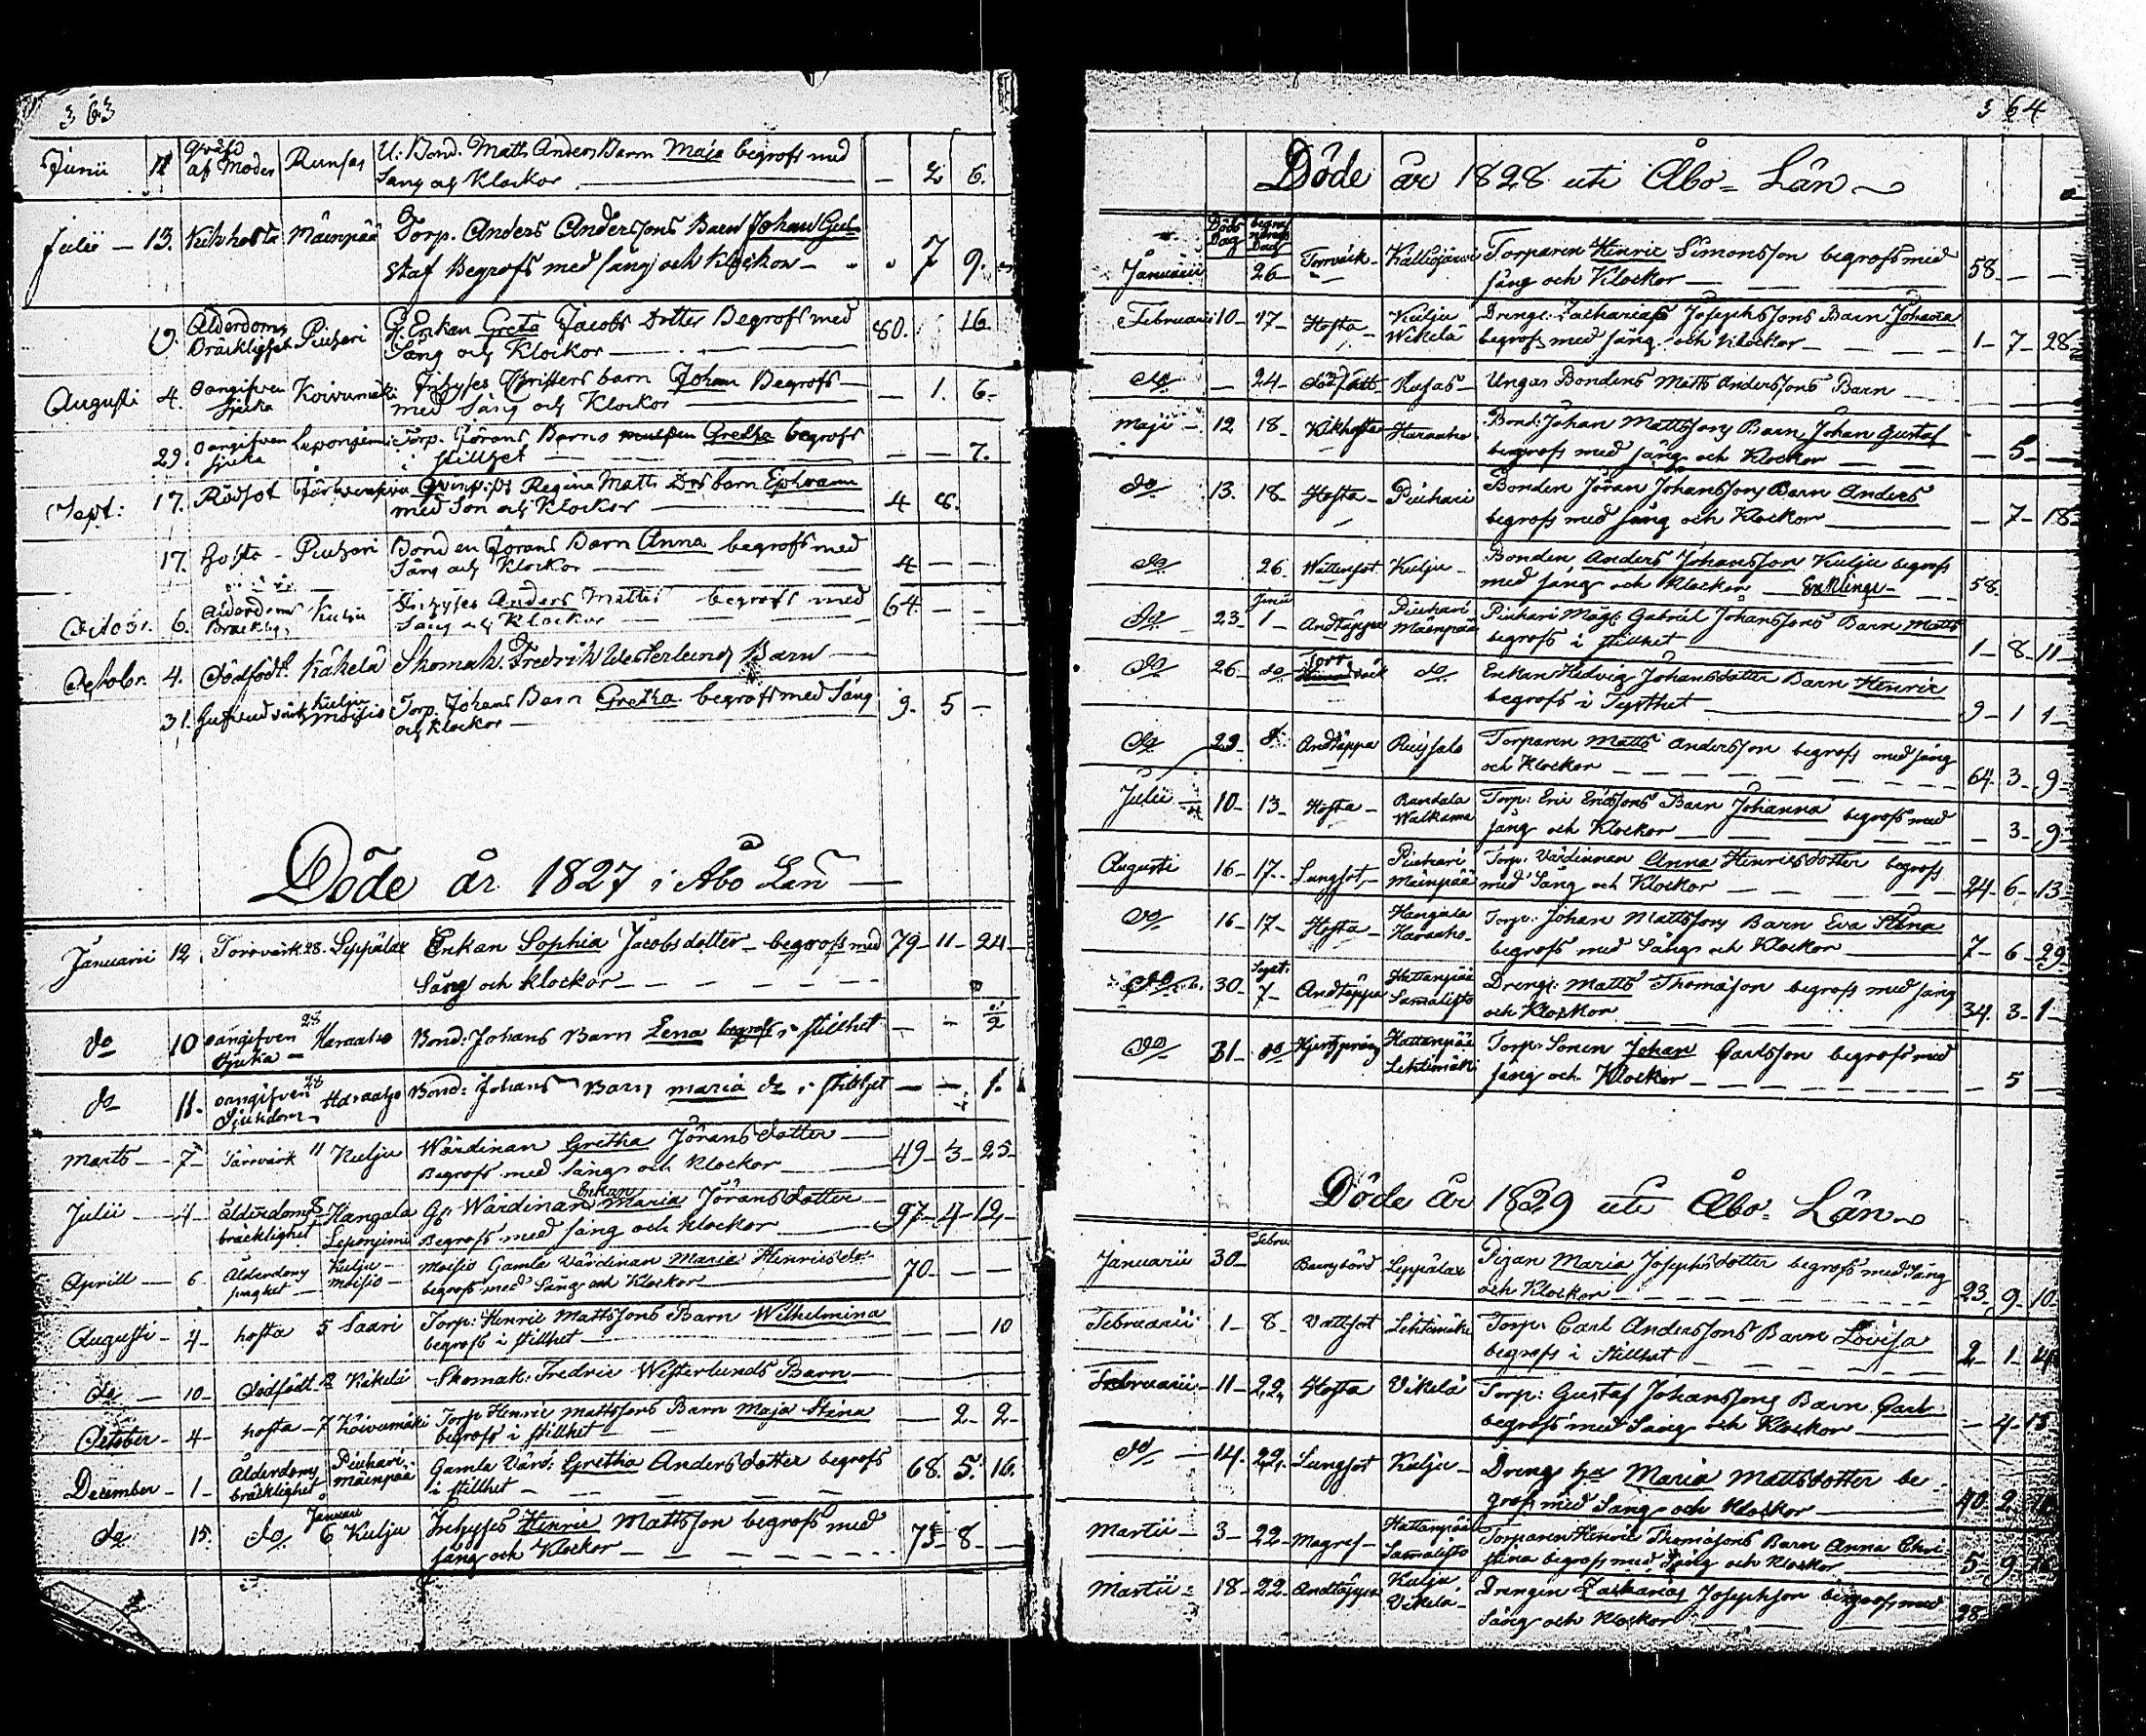 363
Junii 11 qväfd af Moder Runsas U: Bond. Matts Anders Barn Maja begrofs med — 2 6.
Sång och Klockor
Julii — 13. Kikhosta Mäenpää Torp. Anders Anderssons Barn Johan Gus-
staf Begrofs med sång och Klockor — " 7 9.
19. Ålderdoms Bräcklighet Piuhari G. Enkan Greta Jacobs dotter Begrofs med 80. 16
Sång och Klockor
Augusti 4. oangifven sjuka Koivumäki Inhyses Christers barn Johan Begrofs — 1. 6.
med Sång och Klockor
29. oangifven sjuka Leponjemi Torp. Görans Barns Gretha begrofs
i stillhet — — 7.
Sept: 17. Rödsot Regina Matts Drs barn Ephraim
med Son och Klockor 4 8.
17. Hosta - Piuhari Bonden Görans Barn Anna begrofs med
Sång och Klockor 4 — —
October. 6. Ålderdoms Bräcklig. Kulju Inhyses Anders Mattss begrofs med 64. — —
Sång och Klockor
October. 4. Dödfödt. Käkelä Skomak. Fredrik Westerlunds Barn
31. Hufvud värk Kulju Moisio Torp. Johans Barn Gretha begrofs med Sång 9. 5 —
och Klockor
Döde år 1827 i Åbo Län
Januarii 12 Torrvärk 28. Leppälax Enkan Sophia Jacobsdotter begrofs med 79 - 11 - 24
Sång och klockor
do 10 oangifven sjuka 28 Haraaho Bond: Johans Barn Lena begrofs i stillhet — — 1/2
do 11. oangifven Sjukdom 28 Haraaho Bond: Johans Barn maria do i stillhet — — 1.
Marts — 7 — Torrvärk 11 Kulju Wärdinan Gretha Jöransdotter 49 - 3 - 25
Begrofs med sång och klockor
Julii — 4 — ålderdoms bräcklighet 8 Kangala Leponjemi G. Wärdinan Enkan Maria Jöransdotter 97 - 4 - 12
Begrofs med sång och klockor
Aprill — 6. Ålderdoms Kulju moisio Moisio Gamla Värdinan Maria Henricsdr 70 — —
begrofs med Sång och Klockor
Augusti — 4 — hosta 5 Saari Torp: Henric Mattssons Barn Wilhelmina — — 10
begrofs i stillhet
do — 10 — dödfödt 12 Kikeli Skomak: Fredric Westerlunds Barn
October — 4 — hosta — 7 Koivumäki Torp Henric Mattssons Barn Maja Stina — 2 - 2
begrofs i stillhet
December — 1 — Ålderdoms bräcklighet Piuhari Mäenpää Gamla Värd: Gretha Andersdotter begrofs 68. 5. 16.
i stillhet
do 15. do Januari 6 Kulju Inhyses Henric Mattsson begrofs med 75 - 8 —
sång och Klockor
364
Döde år 1828 uti Åbo = Län
Döds Dag begrafnings Dag
Januarii 26 Torrvärk Kalliojärvi Torparen Henric Simonsson begrofs med 58 — —
sång och Klockor
Februarii 10 - 17 - Hosta Kulju Wikelä Dreng: Zacharias Josephssons Barn Johana
begrofs med sång och Klockor 1 - 7 - 28
do — 24 — Rusas Ungar Bondens Matts Anderssons Barn
Maji — 12 18 — Kikhosta Haraaho Bond: Johan Mattssons Barn Johan Gustaf
begrofs med sång och Klockor — 5 —
do 13. 18 — Hosta — Piuhari Bonden Jöran Johanssons Barn Anders
begrofs med sång och Klockor — 7 - 18
do 26 Wattusot Kulju — Bonden Anders Johansson Kulju begrofs
med sång och Klockor 58.
do 23 Junii 1 — Andtäppa Piuhari Mäenpää Piuhari Måg: Gabriel Johanssons Barn Matts
begrofs i stillhet 1 - 8 - 11
do 26 — do Torrvärk do Enkan Hedvig Johansdotter Barn Henric
begrofs i Tysthet 9 - 1 1
do 29 — 8 Andtäppa Ruissalo Torparen Matts Andersson begrofs med sång
och Klockor 64. 3 9
Julii 10 — 13 — Hosta — Randala Walkama Torp: Eric Ericssons Barn Johanna begrofs med
sång och Klockor — 3 — 9
Augusti 16 — 17 — Lungsot — Piuhari Mäinpää Torp: Värdinnan Anna Henricsdotter begrofs
med Sång och Klockor 24 - 6 - 13
do 16 — 17 — Hosta — Kangala Haraaho Torp: Johan Mattssons Barn Eva Stina
begrofs med Sång och Klockor 7 - 6 - 29
do 30 — Sept: 7 — Andtäppa Hattanpää Samalisto Dreng: Matts Thomasson begrofs med sång
och Klockor 34. 3 - 1
do 31 — do Hattanpää Lehtimäki Torp: Sonen Johan Carlsson begrofs med
sång och Klockor — 5 —
Döde år 1829 uti Åbo = Län
Januarii 30 — Febru: Barnsbörd Leppälax Pigan Maria Josephsdotter begrofs med Sång
och Klockor 23 - 9 - 10
Februarii 1 — 8 — Vattsot Lehtimäki Torp: Carl Anderssons Barn Lovisa
begrofs i Stillhet 2 — 1 —
Februarii — 11 — 22 Hosta Vikelä Torp: Gustaf Johanssons Barn Carl
begrofs med Sång och Klockor — 4 - 15
do — 14. 22. Lungsot Kulju — Dreng hu Maria Mattsdotter be-
grofs med Sång och Klockor 40. 2.
Martii — 3 — 22 — Magref — Hattanpää Samalisto Torparen Henric Thomassons Barn Anna Chri-
stina begrofs med Sång och Klockor 5. 9
Martii — 18 — 22 — Andtäppa Kulju Vikelä — Drengen Zacharias Josephsson begrofs med
Sång och Klockor 28